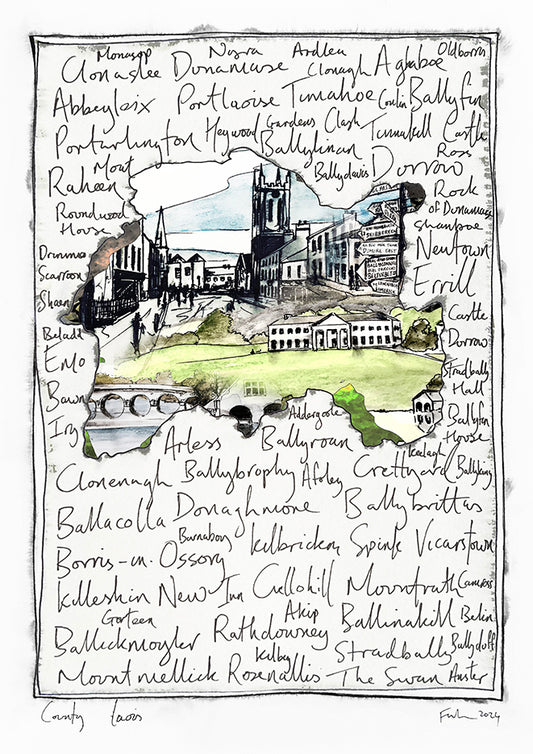 Monasop Nozra Ardlea Oldborris
Clonaslee Dunamase Clonagh Aghaboe
Abbeyleix Portlaoise Timahoe Coolin Ballyfin
Portarlington Heywood Gardens Clash Tinnakill Castle
Mount Ballylinan Ross
Raheen Ballydavis Durrow
Roundwood House
Rock of Dunamase
Shanboe
Newtown
Errill
Drummo
Scarroon
Sheen
Beladd
Emo
Bawn
Iry
Castle Durrow
Stradbally Hall
Ballyfin House
Addergoole
Arless Ballyroan
Clonenagh Ballybrophy Afoley Crettyard Ballyking
Ballacolla Donaghmore Ballybrittas
Barnaboy
Borris-in-Ossory Kilbricken Spink Vicarstown
Killeshin New Inn Cullohill Mountrath Camross
Gorteen Akip
Ballickmoyler Rathdowney Ballinakill Bekin
Kilby Stradbally Ballyduff
Mountmellick Rosenallis The Swan Anster
County Laois
2024